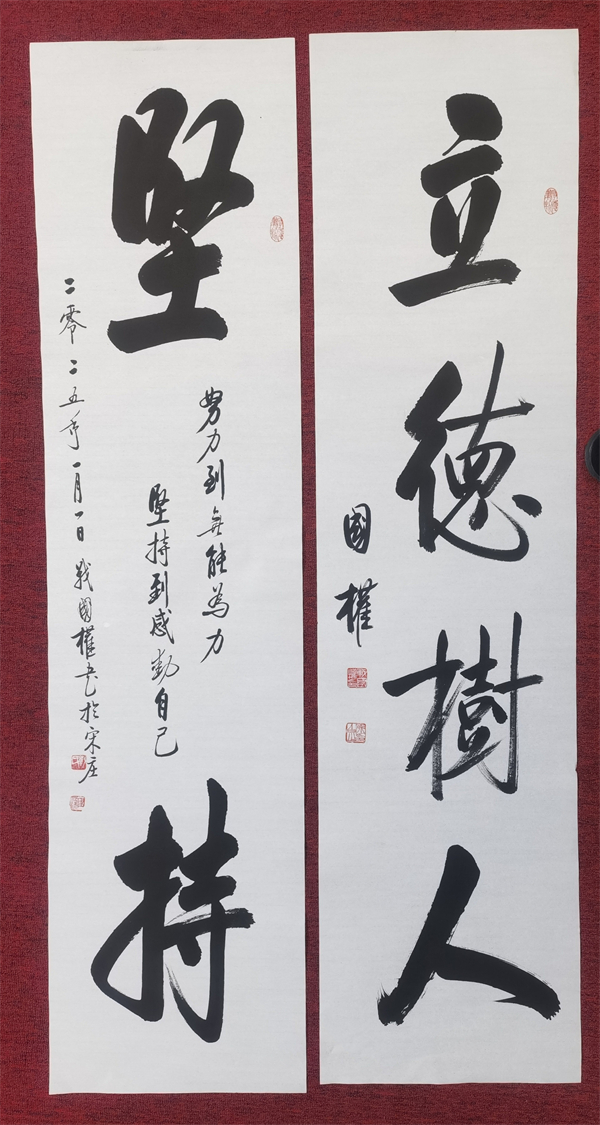 立德樹人
國權
堅
努力到無能為力
堅持到感動自己
持
二零二五年一月一日戰國權書於宋庄